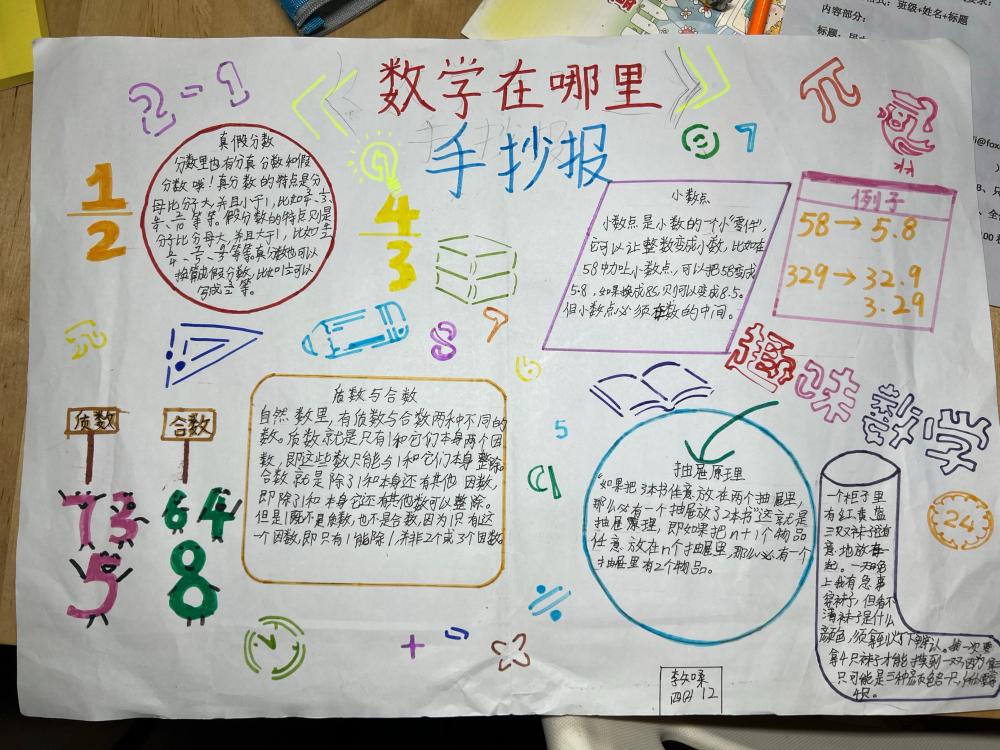 格式：班级+姓名+标题
内容部分：
2 = 1
《数学在哪里》
手抄报
π
8
7
1/2
真假分数
分数里也有分真分数和假
分数哦！真分数的特点是分
母比分子大，并且小于1，比如
等等。假分数的特点则是
分子比分母大，并且大于1，比如
等等。真分数也可以
写成 等。
4/3
小数点
小数点是小数的一个小“零件”，
它可以让整数变成小数，比如在
58中加上小数点，可以把58变成
5.8，如果换成85，则可以变成8.5。
但小数点必须在数的中间。
例子
58→5.8
329→32.9
3.29
8
9
6
趣味
数学
质数
合数
7 3
5
6 4
8
质数与合数
自然数里，有质数与合数两种不同的
数。质数就是只有1和它们本身两个因
数，即这些数只能与1和它们本身整除。
合数就是除了1和本身还有其他因数，
即除了1和本身它还有其他数可以整除。
但是1既不是质数，也不是合数，因为1只有这
一个因数，即只有1能除1，并非2个或3个因数
5
抽屉原理
“如果把3本书任意放在两个抽屉里，
那么必有一个抽屉放了2本书”这就是
抽屉原理，即如果把n+1个物品
任意放在n个抽屉里，那么必有一个
抽屉里有2个物品。
24
一个柜子里
有红黄蓝
三双袜子随
意地放在一
起。一天晚
上我有急事
穿袜子，但看不
清袜子是什么
颜色，须拿到灯下辨认。
拿4只袜子才能
只可能是三种颜色各一只，
4只。
÷
+
四(1) 12